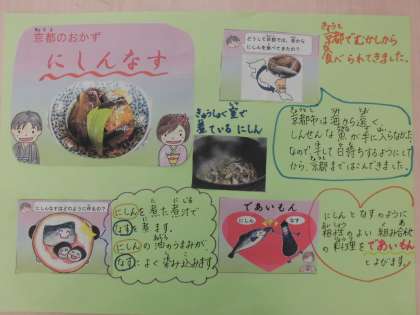 京都のおかず
にしんなす
どうして京都では、昔から
にしんを食べてきたの?
京都でむかしから
食べられてきました。
きゅうしょく室で
煮ているにしん
京都市は海から遠く、
しんせんな魚が手に入らなかた
なので干して日持ちするようにして
から、京都まではこんできました。
にしんなすはどのように作るの?
にしんを煮た煮汁で
なすを煮ます。
にしんの油のうまみが、
なすによく染み込みます。
であいもん
にしん
なす
にしんとなすのように
相性のよい組み合わせ
の料理をであいもん
とよびます。